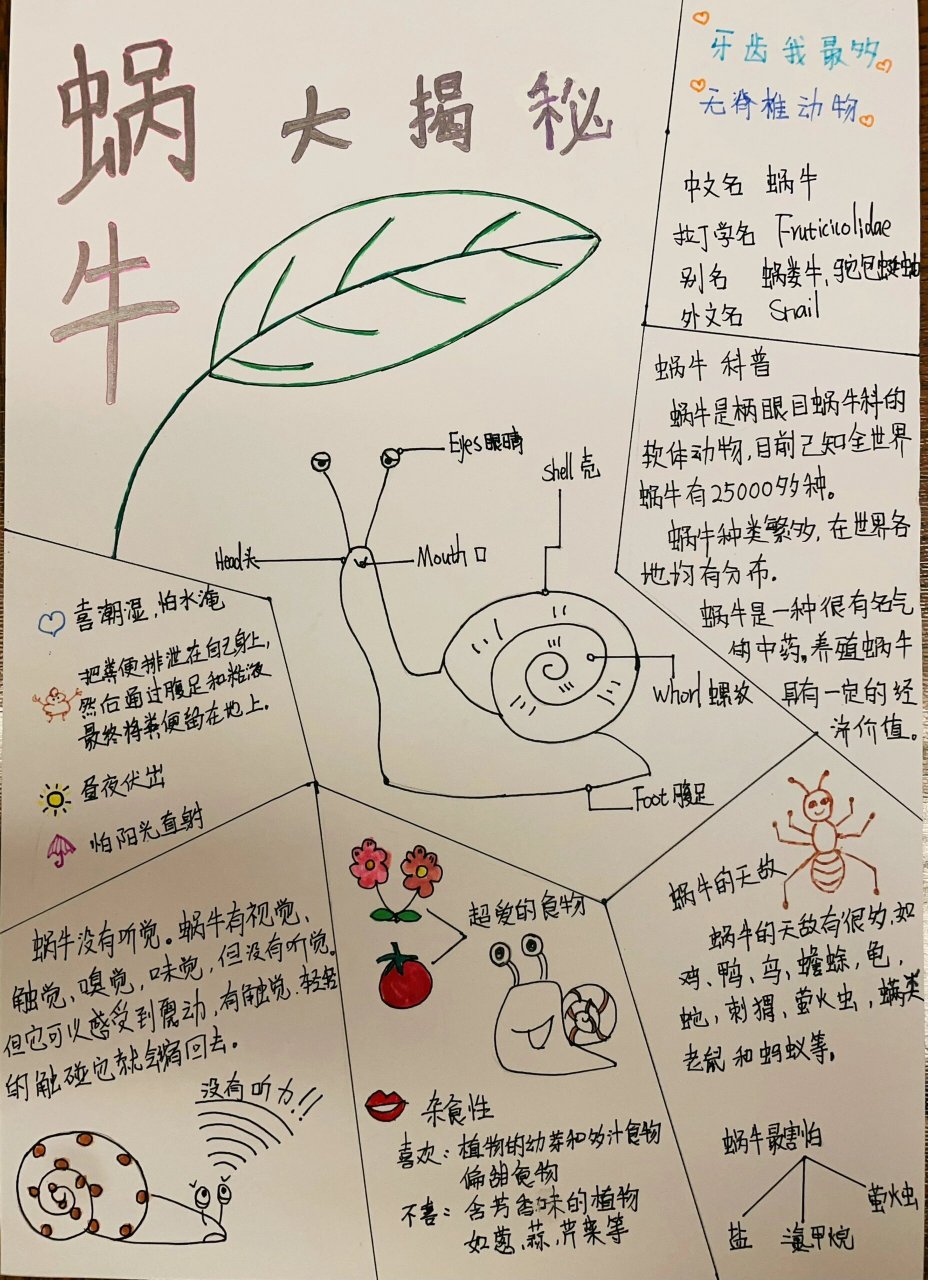 蜗牛 大揭秘
牙齿我最多
无脊椎动物
中文名 蜗牛
拉丁学名 Fruticicolidae
别名 蜗娄牛,驼包蚰
外文名 Snail
蜗牛 科普
蜗牛是柄眼目蜗牛科的
软体动物,目前已知全世界
蜗牛有25000多种。
蜗牛种类繁多,在世界各
地均有分布.
蜗牛是一种很有名气
的中药。养殖蜗牛
具有一定的经
济价值。
Eyes 眼睛
Shell 壳
Head 头
Mouth 口
Whorl 螺纹
Foot 腹足
喜潮湿,怕水淹
把粪便排泄在自己身上,
然后通过腹足和粘液
最终将粪便留在地上.
昼夜伏出
怕阳光直射
蜗牛没有听觉。蜗牛有视觉、
触觉、嗅觉,味觉,但没有听觉。
但它可以感受到震动,有触觉.轻轻
的触碰它就会缩回去。
没有听力!!
超爱的食物
杂食性
喜欢:植物的幼芽和多汁食物
偏甜食物
不喜:含芳香味的植物
如葱、蒜、芹菜等
蜗牛的天敌
蜗牛的天敌有很多,如
鸡、鸭、鸟、蟾蜍、龟,
蛇,刺猬,萤火虫,螨类
老鼠和蚂蚁等。
蜗牛最害怕
盐
甲烷
萤火虫